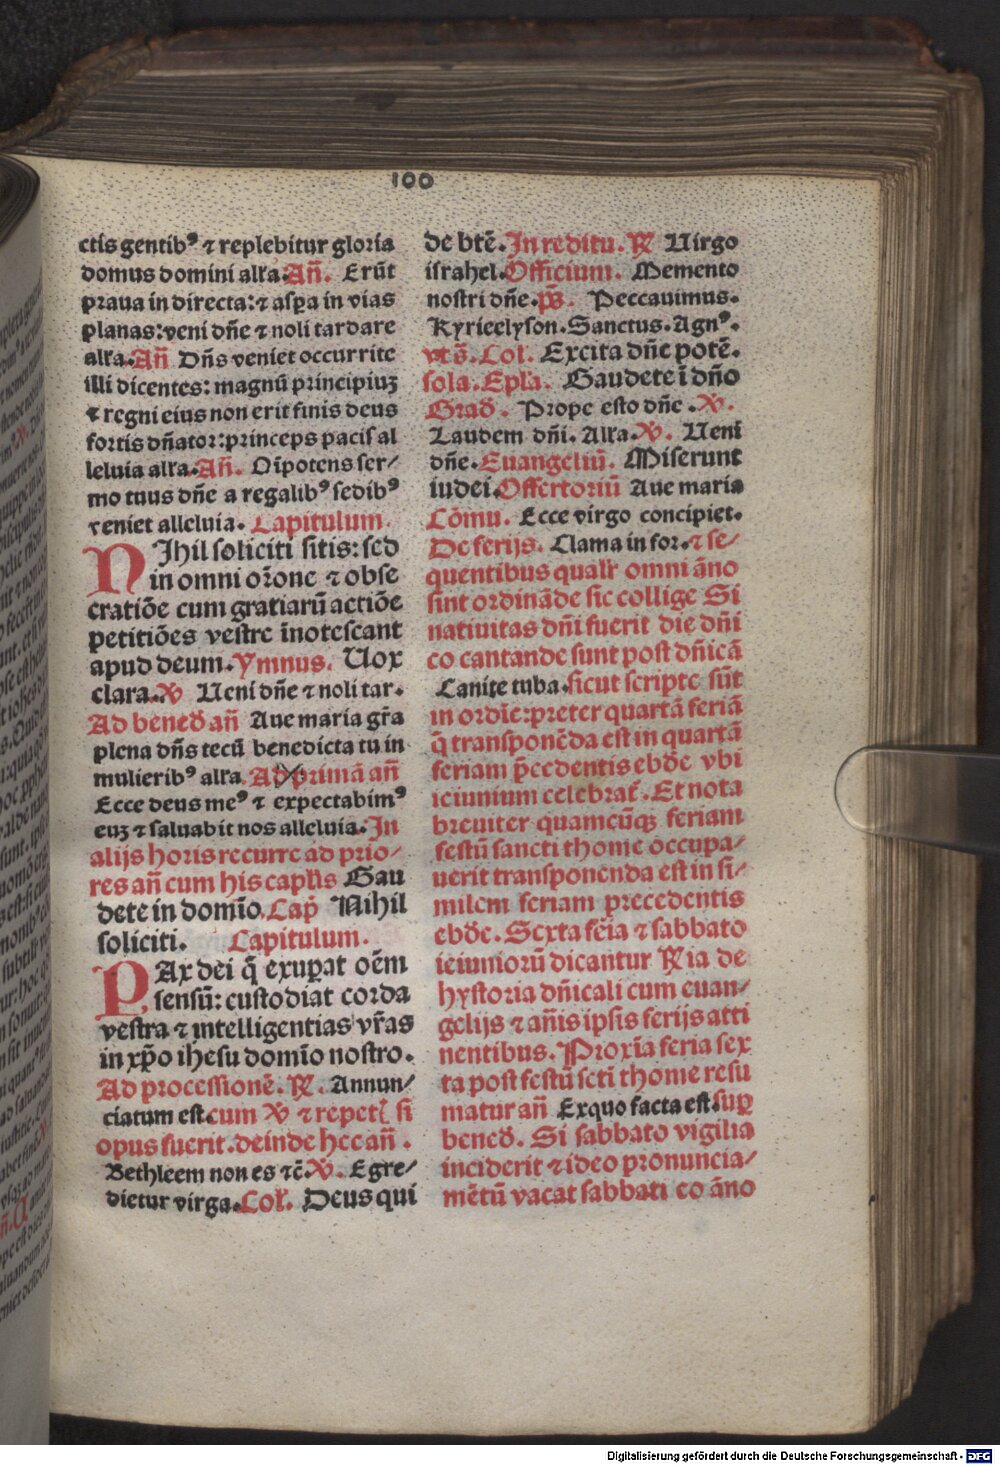 100
ctis gentibꝰ ⁊ replebitur gloria
domus domini alľa. Añ. Erūt
praua in directa: ⁊ aspa in vias
planas: veni dñe ⁊ noli tardare
alľa. Añ Dñs veniet occurrite
illi dicentes: magnū principiuʒ
⁊ regni eius non erit finis deus
fortis dñator: princeps pacis al
leluia alľa. Añ. Oīpotens ser/
mo tuus dñe a regalibꝰ sedibꝰ
veniet alleluia. Capitulum.
NIhil soliciti sitis: sed
in omni orōne ⁊ obse
cratiōe cum gratiarū actiōe
petitiōes vestre īnotescant
apud deum. Ymnus. Uox
clara. ℣ Ueni dñe ⁊ noli tar.
Ad beneđ añ Aue maria gr̄a
plena dñs tecū benedicta tu in
mulieribꝰ alľa. Ad primā añ
Ecce deus meꝰ ⁊ expectabimꝰ
euʒ ⁊ saluabit nos alleluia. In
alijs horis recurre ad prio/
res añ cum his caplis Gau
dete in domīo. Cap̄ Nihil
soliciti. Capitulum.
PAx dei q̄ exuꝑat oēm
sensū: custodiat corda
vestra ⁊ intelligentias vr̄as
in xp̄o ihesu domīo nostro.
Ad processionē. ℟. Annun/
ciatum est. cum ℣ ⁊ repetī. si
opus fuerit. deinde hec añ.
Bethleem non es ⁊c̄. ℣. Egre/
dietur virga. Col̄. Deus qui
de btē. In reditu. ℟ Uirgo
israhel. Officium. Memento
nostri dñe. p̄s. Peccauimus.
Kyrieelyson. Sanctus. Agnꝰ.
vt s̄. Col. Excita dñe potē.
sola. Epľa. Gaudete ī dño
Građ. Prope esto dñe. ℣.
Laudem dñi. Alľa. ℣. Ueni
dñe. Euangeliū. Miserunt
iudei. Offertoriū Aue maria
Cōmu. Ecce virgo concipiet.
De ferijs. Clama in for. ⁊ se/
quentibus qualr̄ omni āno
sint ordināde sic collige Si
natiuitas dñi fuerit die dñi
co cantande sunt post dñicā
Canite tuba. sicut scripte sūt
in ordīe: preter quartā feriā
q̄ transponēda est in quartā
feriam p̄cedentis ebđe vbi
ieiunium celebrat̄. Et nota
breuiter quamcūqꝫ feriam
festū sancti thome occupa/
uerit transponenda est in si/
milem feriam precedentis
ebđe. Sexta feīa ⁊ sabbato
ieiuniorū dicantur ℟ia de
hystoria dñicali cum euan/
gelijs ⁊ añis ipsis ferijs atti
nentibus. Proxīa feria sex
ta post festū scti thome resu
matur añ Exquo facta est. suꝑ
beneđ. Si sabbato vigilia
inciderit ⁊ ideo pronuncia/
mētū vacat sabbati eo āno
Digitalisierung gefördert durch die Deutsche Forschungsgemeinschaft - DFG